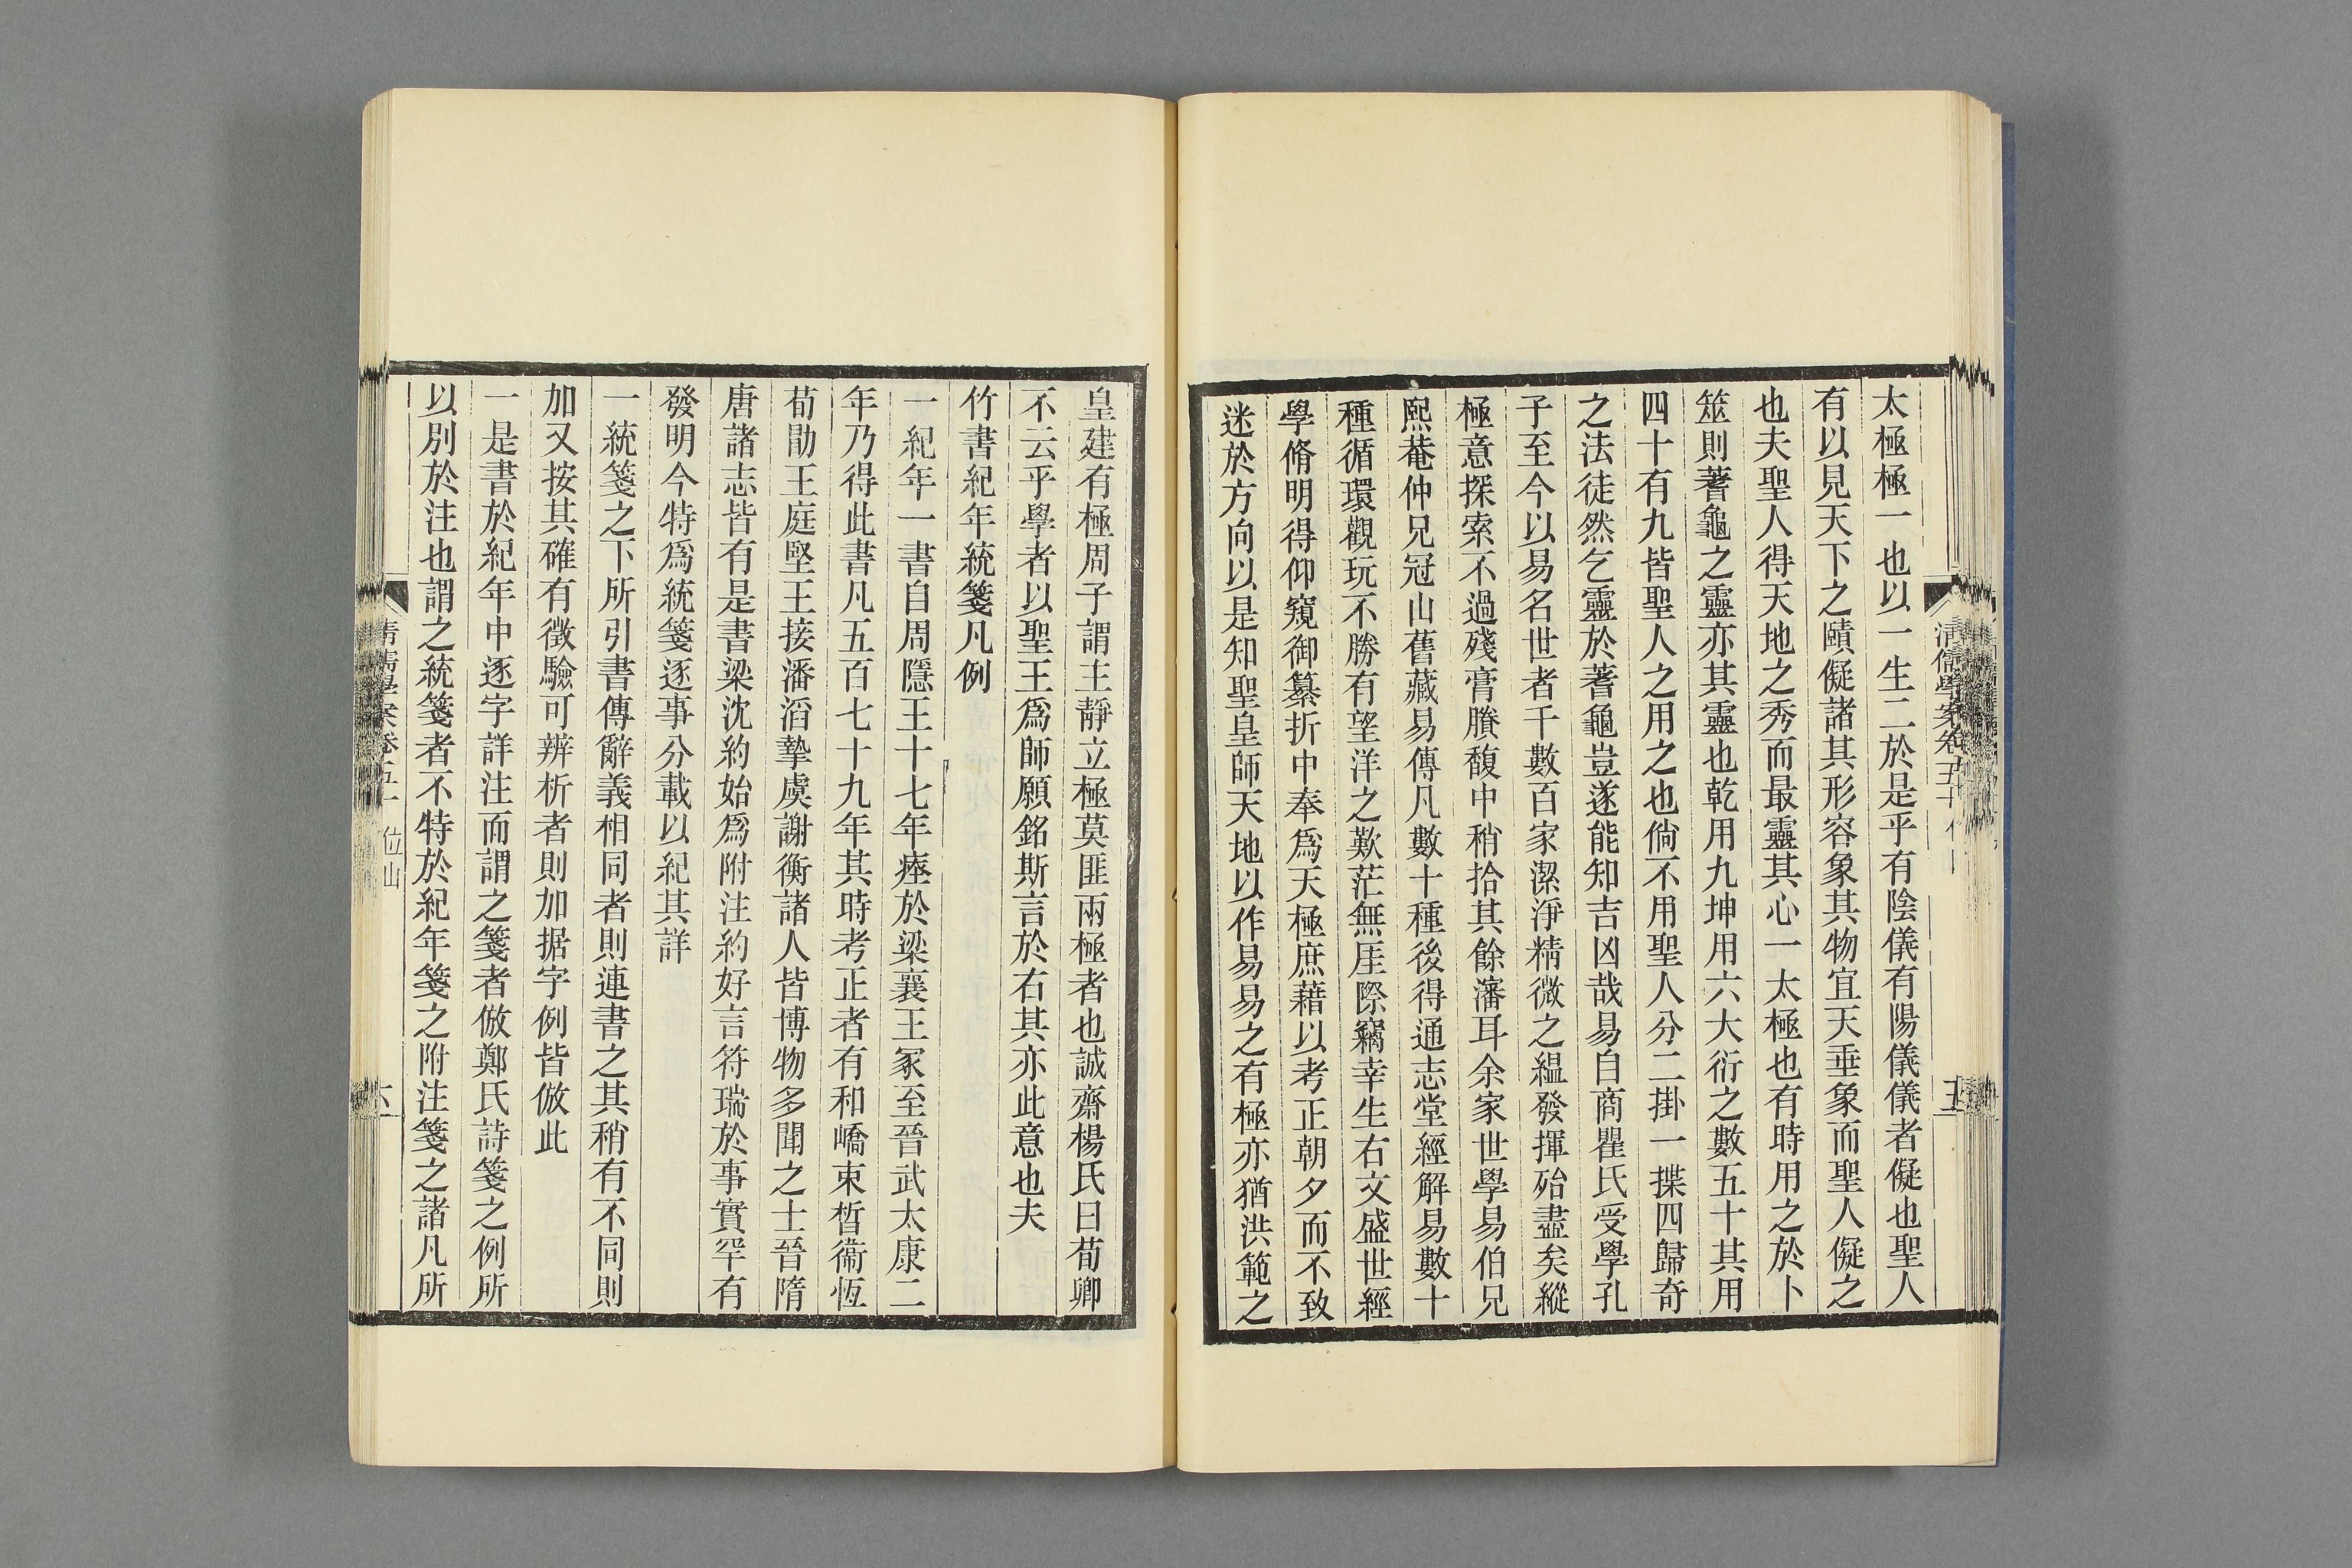 太極極一也以一生二於是乎有陰儀有陽儀儀者儗也聖人
有以見天下之賾儗諸其形容象其物宜天垂象而聖人儗之
也夫聖人得天地之秀而最靈其心一太極也有時用之於卜
筮則蓍龜之靈亦其靈也乾用九坤用六大衍之數五十其用
四十有九皆聖人之用之也倘不用聖人分二掛一揲四歸奇
之法徒然乞靈於蓍龜豈遂能知吉凶哉易自商瞿氏受學孔
子至今以易名世者千數百家潔淨精微之緼發揮殆盡矣縱
極意探索不過殘膏賸馥中稍拾其餘瀋耳余家世學易伯兄
熙菴仲兄冠山舊藏易傳凡數十種後得通志堂經解易數十
種循環觀玩不勝有望洋之歎茫無厓際竊幸生右文盛世經
學脩明得仰窺御纂折中奉爲天極庶藉以考正朝夕而不致
迷於方向以是知聖皇師天地以作易易之有極亦猶洪範之
清儒學案卷五十
五
皇建有極周子謂主靜立極莫匪兩極者也誠齋楊氏曰荀卿
不云乎學者以聖王爲師願銘斯言於右其亦此意也夫
竹書紀年統箋凡例
一紀年一書自周隱王十七年瘞於梁襄王冢至晉武太康二
年乃得此書凡五百七十九年其時考正者有和嶠束晳衞恆
荀勖王庭堅王接潘滔摯虞謝衡諸人皆博物多聞之士晉隋
唐諸志皆有是書梁沈約始爲附注約好言符瑞於事實罕有
發明今特爲統箋逐事分載以紀其詳
一統箋之下所引書傳辭義相同者則連書之其稍有不同則
加又按其確有徵驗可辨析者則加据字例皆倣此
一是書於紀年中逐字詳注而謂之箋者倣鄭氏詩箋之例所
以別於注也謂之統箋者不特於紀年箋之附注箋之諸凡所
清儒學案卷五十 位山
六